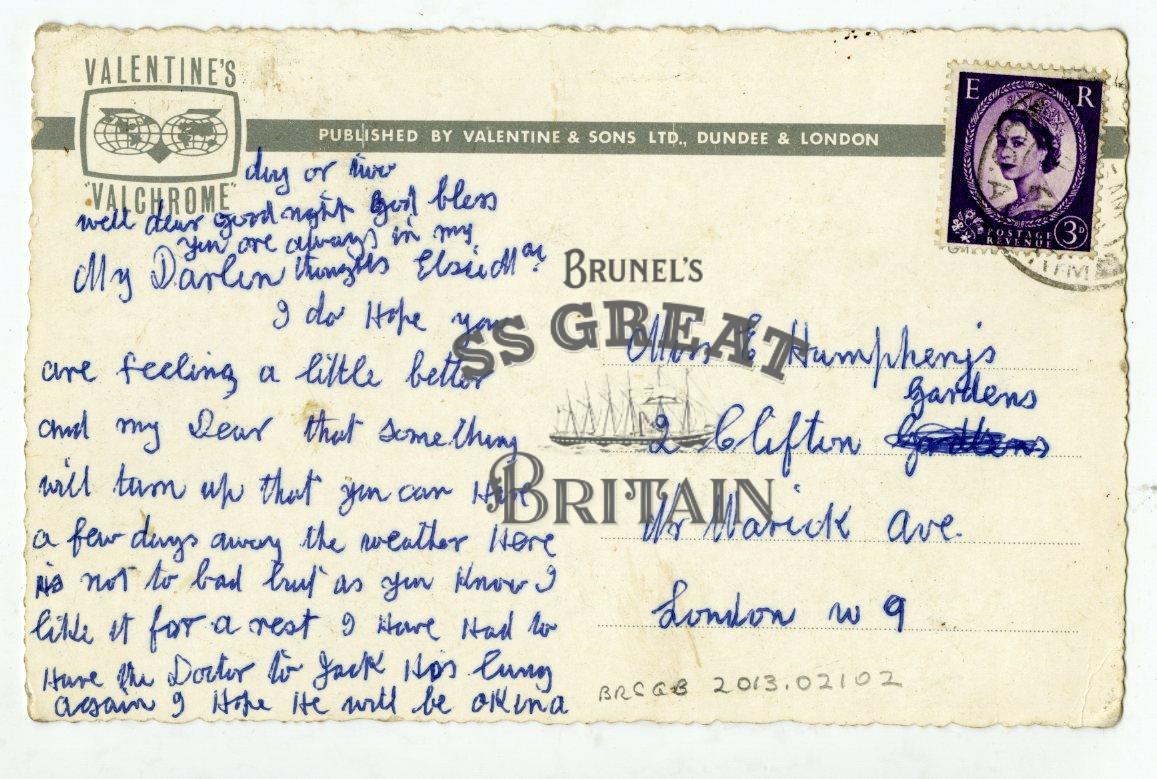 VALENTINE'S
"VALCHROME"
PUBLISHED BY VALENTINE & SONS LTD., DUNDEE & LONDON
E R
POSTAGE
REVENUE
3D
My Darlin
I do Hope you
are feeling a little better
and my Dear that something
will turn up that you can Have
a few days away the weather Here
is not to bad but as you know I
like it for a rest I Have Had to
Have the Doctor to Jack His lung
again I Hope He will be OK in a
day or two
well dear good night God bless
you are always in my
thoughts Elsie May
BRUNEL'S
SS GREAT
BRITAIN
Miss E Humpherys
Gardens
2 Clifton
Nr Warick Ave.
London W 9
BRSGB 2013.02102